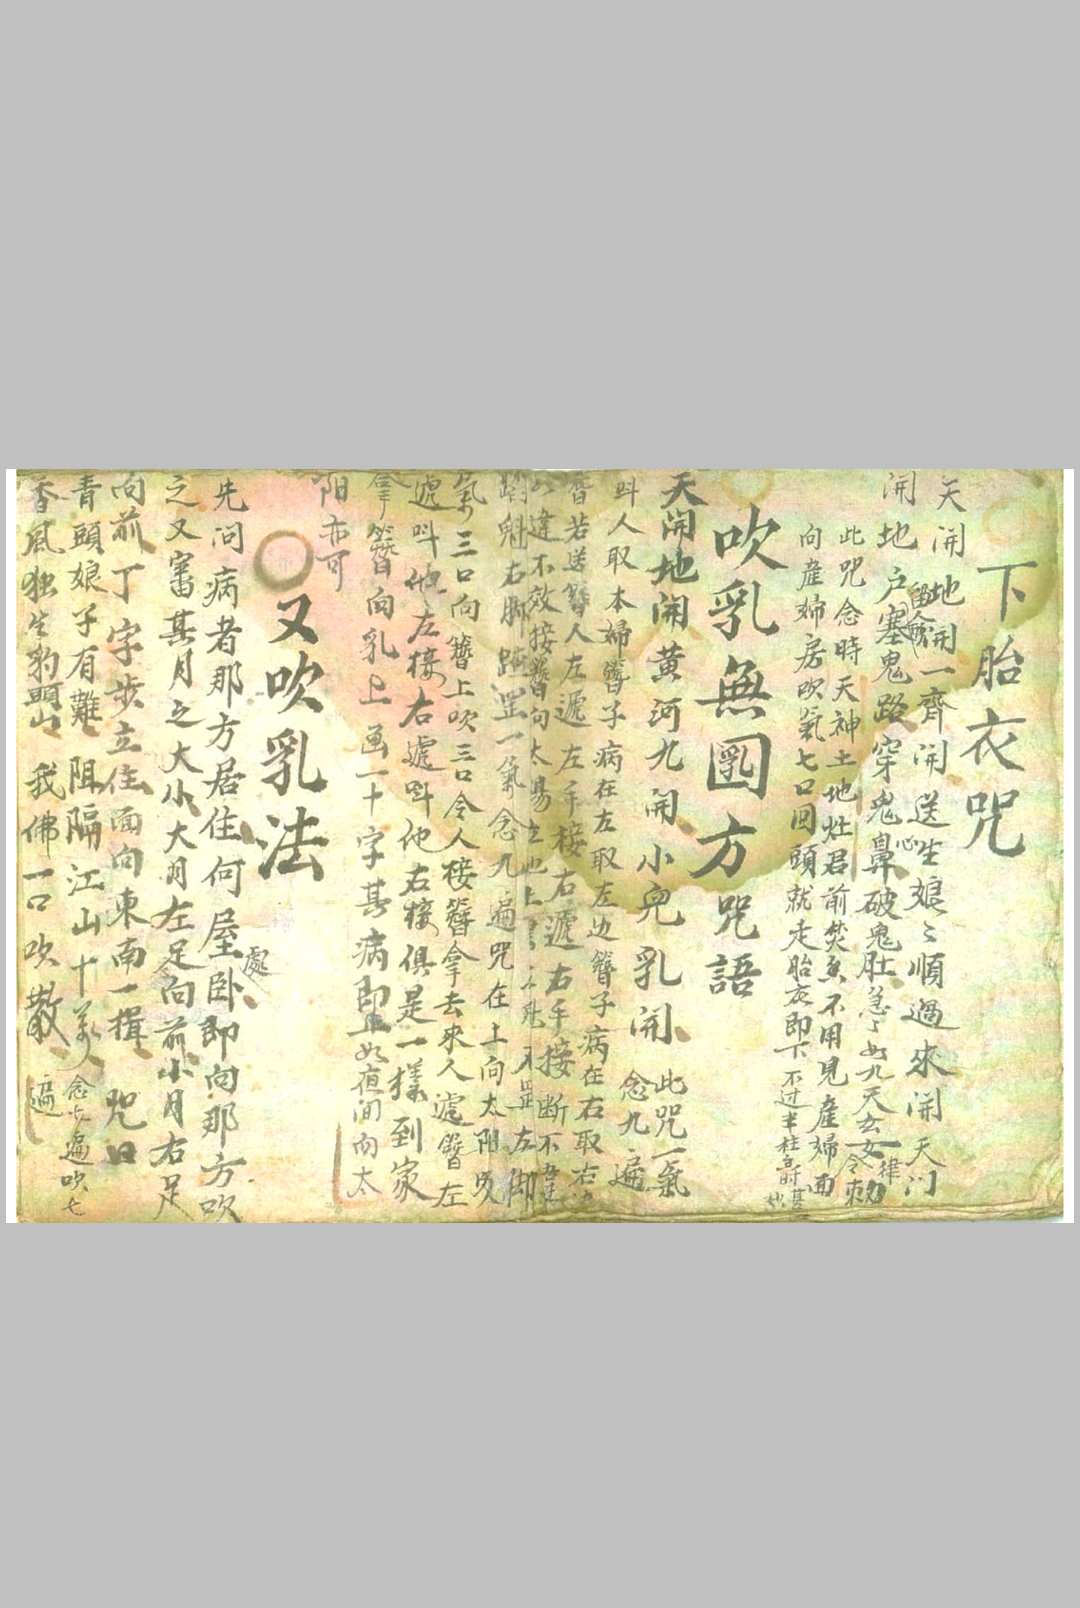 下胎衣咒
天開地開一齊開送生娘〻順過來開天門
開地户塞鬼路穿鬼鼻破鬼肚急〻如九天玄女律令敕
此咒念時天神土地灶君前焚香不用見産婦面
向産婦房吹氣七口回頭就走胎衣即下不过半柱香時甚妙
吹乳無圐方咒語
天開地開黄河九開小兒乳開
此咒一氣念九遍
叫人取本婦簪子病在左取左边簪子病在右取右边
簪若送簪人左遞左手接右遞右手接断不可
違不效接簪向太陽
罡左脚
跐魁右脚跐罡一氣念九遍咒在上向太阳吸
氣三口向簪上吹三口令人接簪拿去來人遞簪左
遞叫他左接右遞叫他右接俱是一樣到家
拿簪向乳上画一十字其病即止如夜間向太
阳亦可
又吹乳法
先问病者那方居住何屋卧處即向那方吹
之又審其月之大小大月左足向前小月右足
向前丁字步立住面向東南一揖咒曰
青頭娘子有難阻隔江山十美人念七遍吹七
香風独生豹頭山我佛一口吹散遍